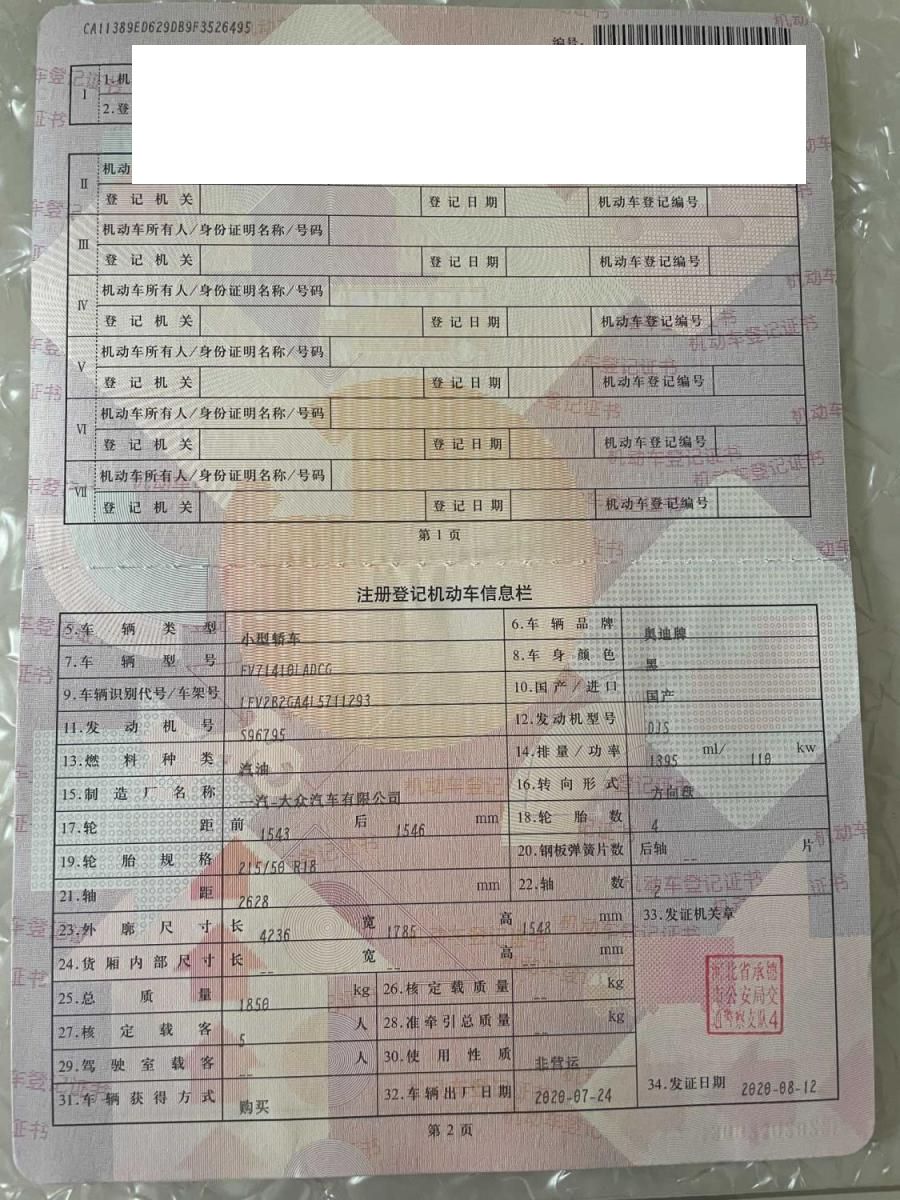 CA11389ED629DB9F3526495
编号:
I 1.机
2.登
II 机动
登记机关 登记日期 机动车登记编号
III 机动车所有人/身份证明名称/号码
登记机关 登记日期 机动车登记编号
IV 机动车所有人/身份证明名称/号码
登记机关 登记日期 机动车登记编号
V 机动车所有人/身份证明名称/号码
登记机关 登记日期 机动车登记编号
VI 机动车所有人/身份证明名称/号码
登记机关 登记日期 机动车登记编号
VII 机动车所有人/身份证明名称/号码
登记机关 登记日期 机动车登记编号
第1页
注册登记机动车信息栏
5.车辆类型 小型轿车 6.车辆品牌 奥迪牌
7.车辆型号 FV71410LADCG 8.车身颜色 黑
9.车辆识别代号/车架号 LFV2B2GA4L5711293 10.国产/进口 国产
11.发动机号 S96795 12.发动机型号 DJS
13.燃料种类 汽油 14.排量/功率 1395 ml/ 110 kw
15.制造厂名称 一汽-大众汽车有限公司 16.转向形式 方向盘
17.轮距 前 1543 后 1546 mm 18.轮胎数 4
19.轮胎规格 215/50 R18 20.钢板弹簧片数 后轴 -- 片
21.轴距 2628 mm 22.轴数 2
23.外廓尺寸 长 4236 宽 1785 高 1548 mm 33.发证机关章
24.货厢内部尺寸 长 -- 宽 -- 高 -- mm
25.总质量 1850 kg 26.核定载质量 -- kg
河北省承德
市公安局交
通警察支队4
27.核定载客 5 人 28.准牵引总质量 -- kg
29.驾驶室载客 -- 人 30.使用性质 非营运
31.车辆获得方式 购买 32.车辆出厂日期 2020-07-24 34.发证日期 2020-08-12
第2页